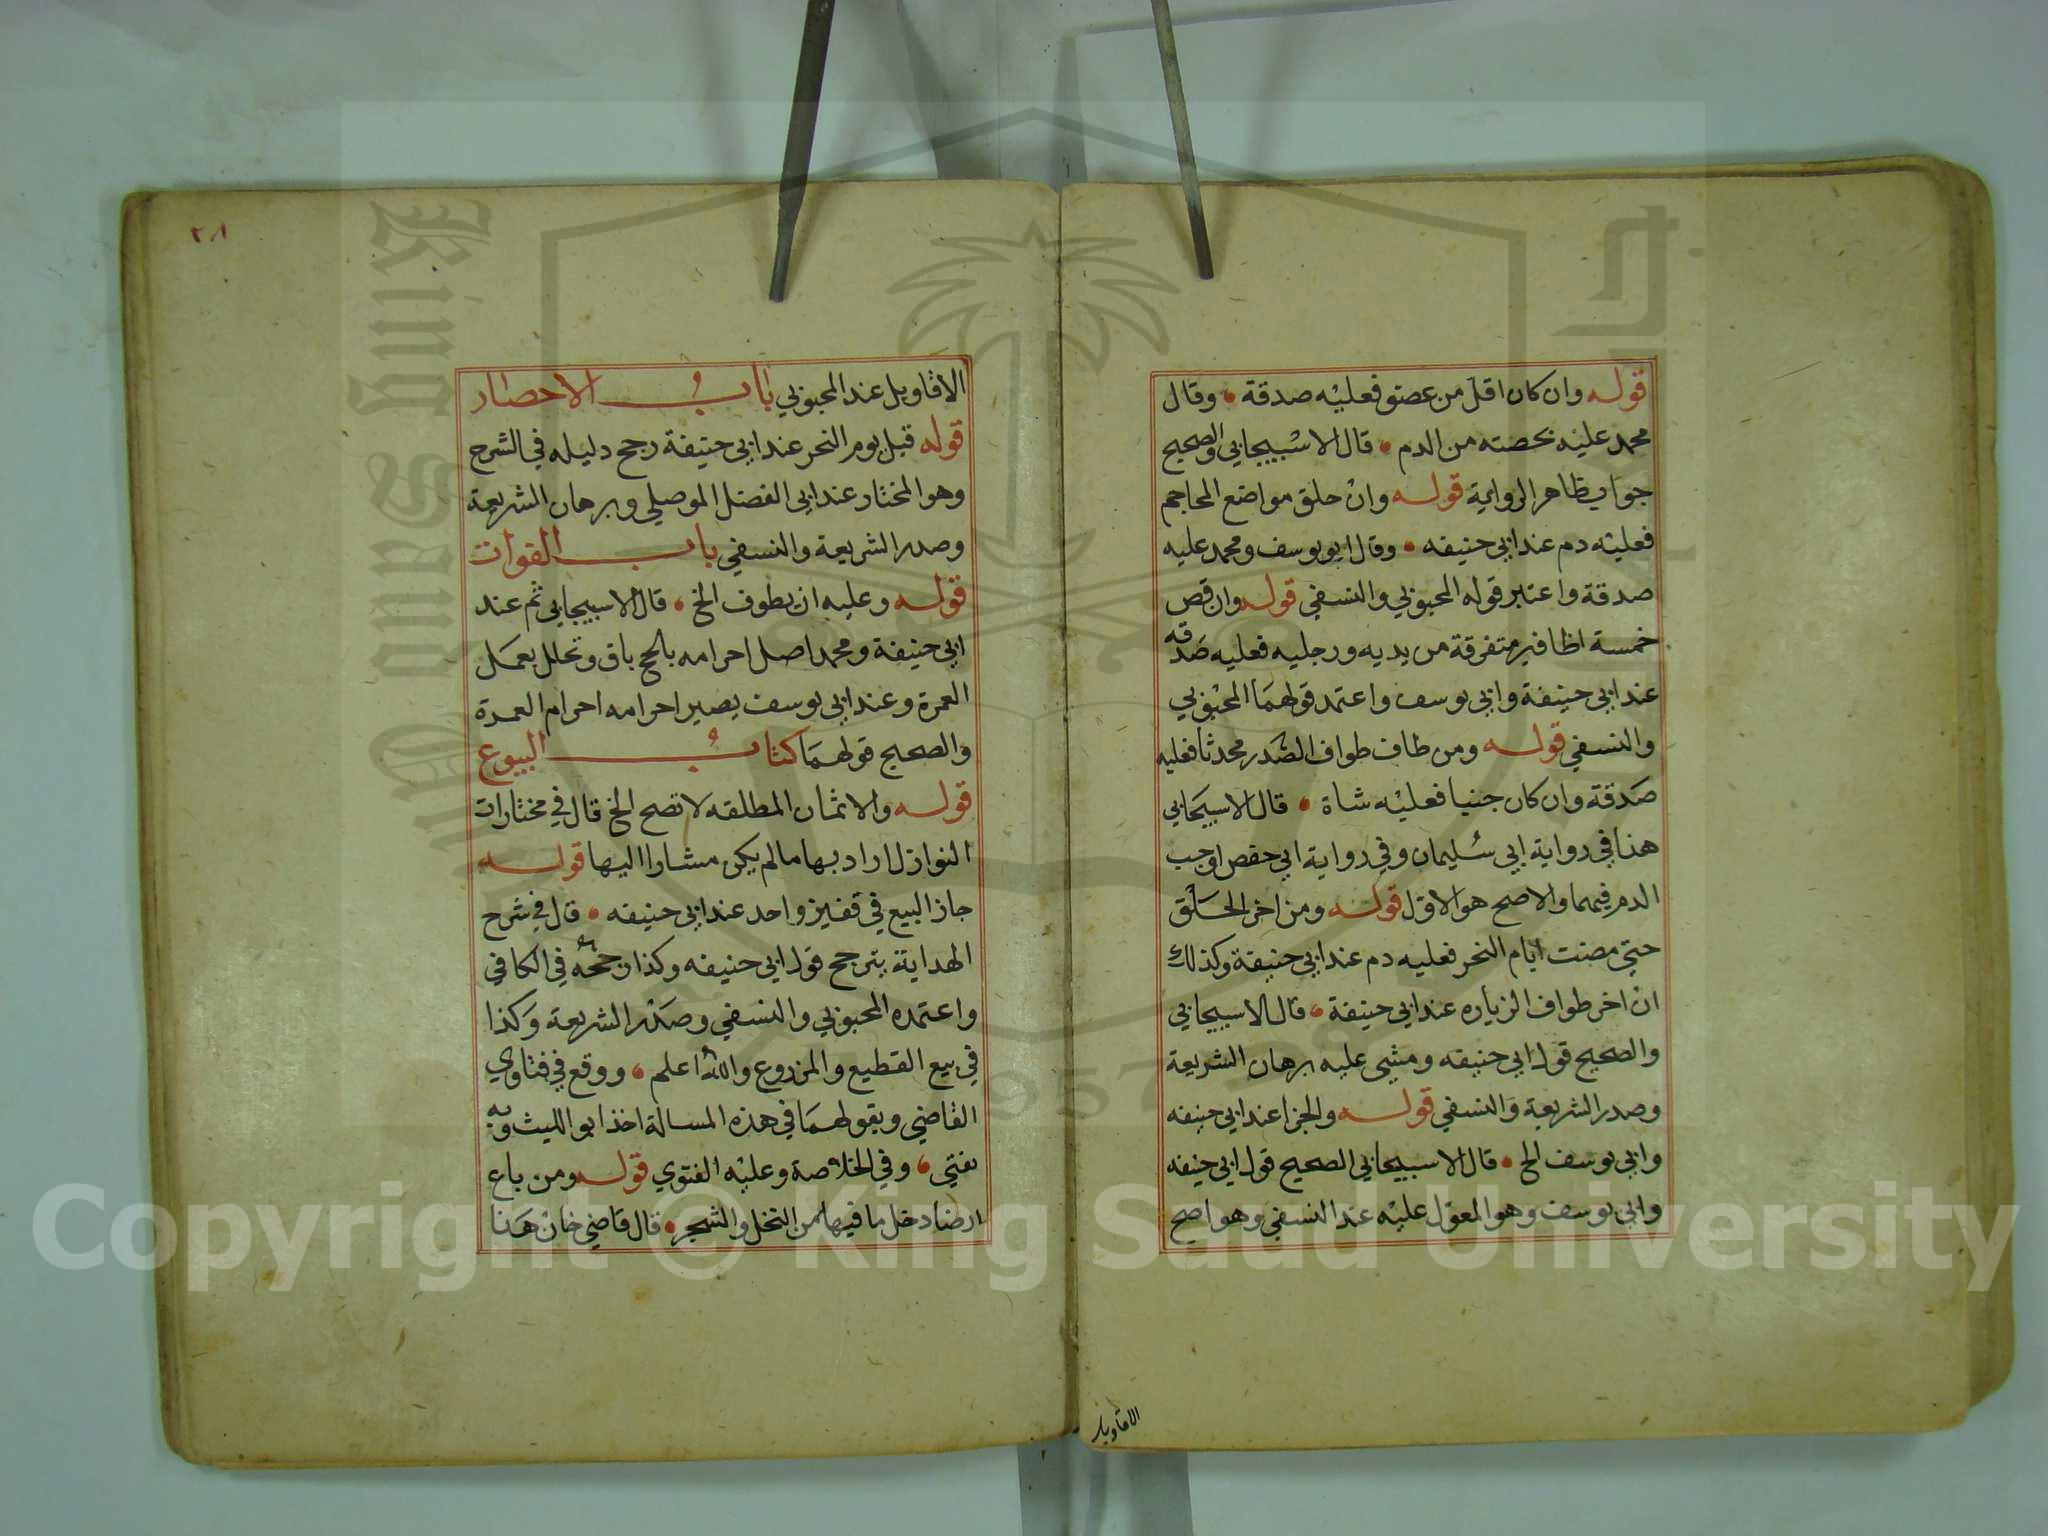 قوله وان كان اقل من عضو فعليه صدقة وقال
محمد عليه بحصته من الدم قال الاسبيجابي والصحيح
جواب ظاهر الرواية قوله وان حلق مواضع المحاجم
فعليه دم عند ابي حنيفه وقال ابو يوسف ومحمد عليه
صدقة واعتبر قوله المحبوبي والنسفي قوله وان قص
خمسة اظافير متفرقة من يديه ورجليه فعليه صدقه
عند ابي حنيفة وابي يوسف واعتمد قولهما المحبوبي
والنسفي قوله ومن طاف طواف الصدر محدثا فعليه
صدقة وان كان جنبا فعليه شاة قال الاسبيجابي
هذا في رواية ابي سليمان وفي رواية ابي حفص اوجب
الدم فيهما والاصح هو الاول قوله ومن اخر الحلق
حتي مضت ايام النحر فعليه دم عند ابي حنيفة وكذلك
ان اخر طواف الزياره عند ابي حنيفة قال الاسبيجابي
والصحيح قول ابي حنيفه ومشى عليه برهان الشريعة
وصدر الشريعة والنسفي قوله والجزا عند ابي حنيفه
وابي يوسف الخ قال الاسبيجابي الصحيح قول ابي حنيفه
وابي يوسف وهو المعول عليه عند النسفي وهو اصح
الاقاويل
٢٠١
الاقاويل عند المحبوبي باب الاحصار
قوله قبل يوم النحر عند ابي حنيفة رجح دليله في الشرح
وهو المختار عند ابي الفضل الموصلي وبرهان الشريعة
وصدر الشريعة والنسفي باب الفوات
قوله وعليه ان يطوف الخ قال الاسبيجابي ثم عند
ابي حنيفة ومحمد اصل احرامه بالحج باق وتحلل بعمل
العمرة وعند ابي يوسف يصير احرامه احرام العمرة
والصحيح قولهما كتاب البيوع
قوله والاثمان المطلقه لا تصح الخ قال في مختارات
النوازل اراد بها ما لم يكن مشارا اليها قوله
جاز البيع في قفيز واحد عند ابي حنيفه قال في شرح
الهداية بترجح قول ابي حنيفه وكذا رجحه في الكافي
واعتمده المحبوبي والنسفي وصدر الشريعة وكذا
في بيع القطيع والمزروع والله اعلم ووقع في فتاوي
القاضي وبقولهما في هذه المسالة اخذ ابو الليث وبه
يفتي وفي الخلاصة وعليه الفتوي قوله ومن باع
ارضا دخل ما فيها من النخل والشجر قال قاضي خان هذا
King Saud University
1957
Copyright © King Saud University